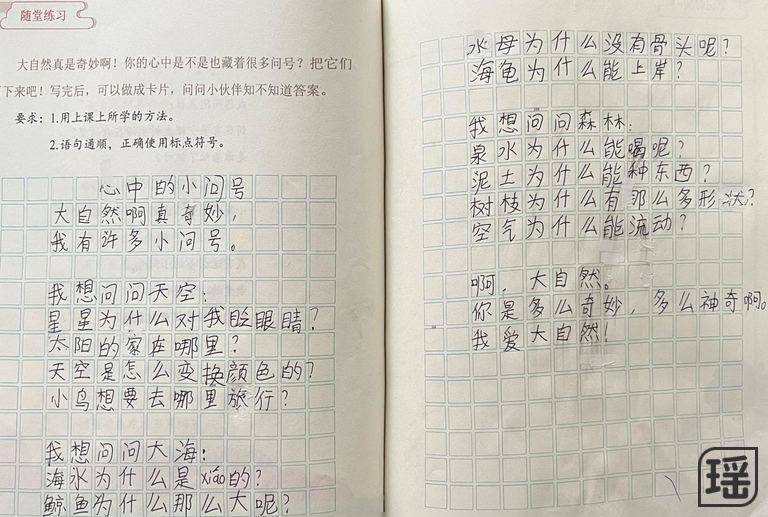 随堂练习
大自然真是奇妙啊！你的心中是不是也藏着很多问号？把它们
下来吧！写完后，可以做成卡片，问问小伙伴知不知道答案。
要求：1.用上课上所学的方法。
2.语句通顺，正确使用标点符号。
心中的小问号
大自然啊真奇妙，
我有许多小问号。
我想问问天空：
星星为什么对我眨眼睛？
太阳的家在哪里？
天空是怎么变换颜色的？
小鸟想要去哪里旅行？
我想问问大海：
海水为什么是xián的？
鲸鱼为什么那么大呢？
水母为什么没有骨头呢？
海龟为什么能上岸？
我想问问森林：
泉水为什么能喝呢？
泥土为什么能种东西？
树枝为什么有那么多形状？
空气为什么能流动？
啊，大自然。
你是多么奇妙，多么神奇啊。
我爱大自然！
瑶